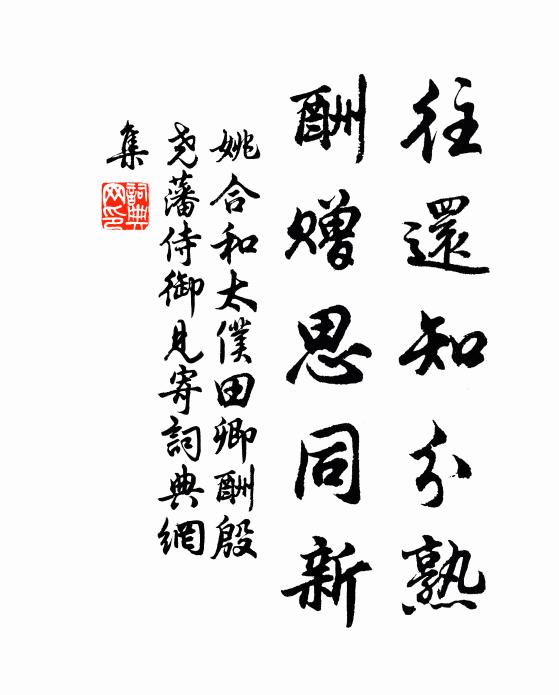 往還知分熟
酬贈思同新
姚合和太僕田卿酬殷
尧藩侍御見寄詞典網
集
詞典
网印